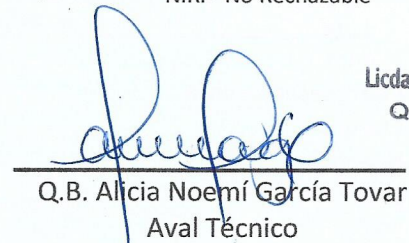 N.R. - No Rechazable
Licda
Q
Q.B. Alicia Noemí García Tovar
Aval Técnico